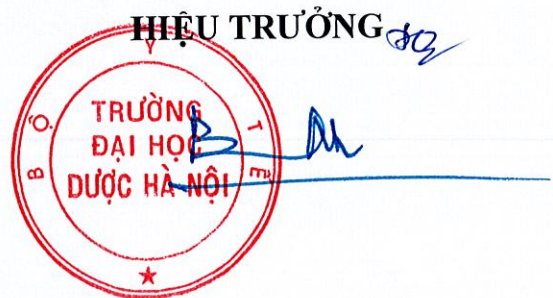 HIỆU TRƯỞNG
BỘ Y TẾ
TRƯỜNG
ĐẠI HỌC
DƯỢC HÀ NỘI